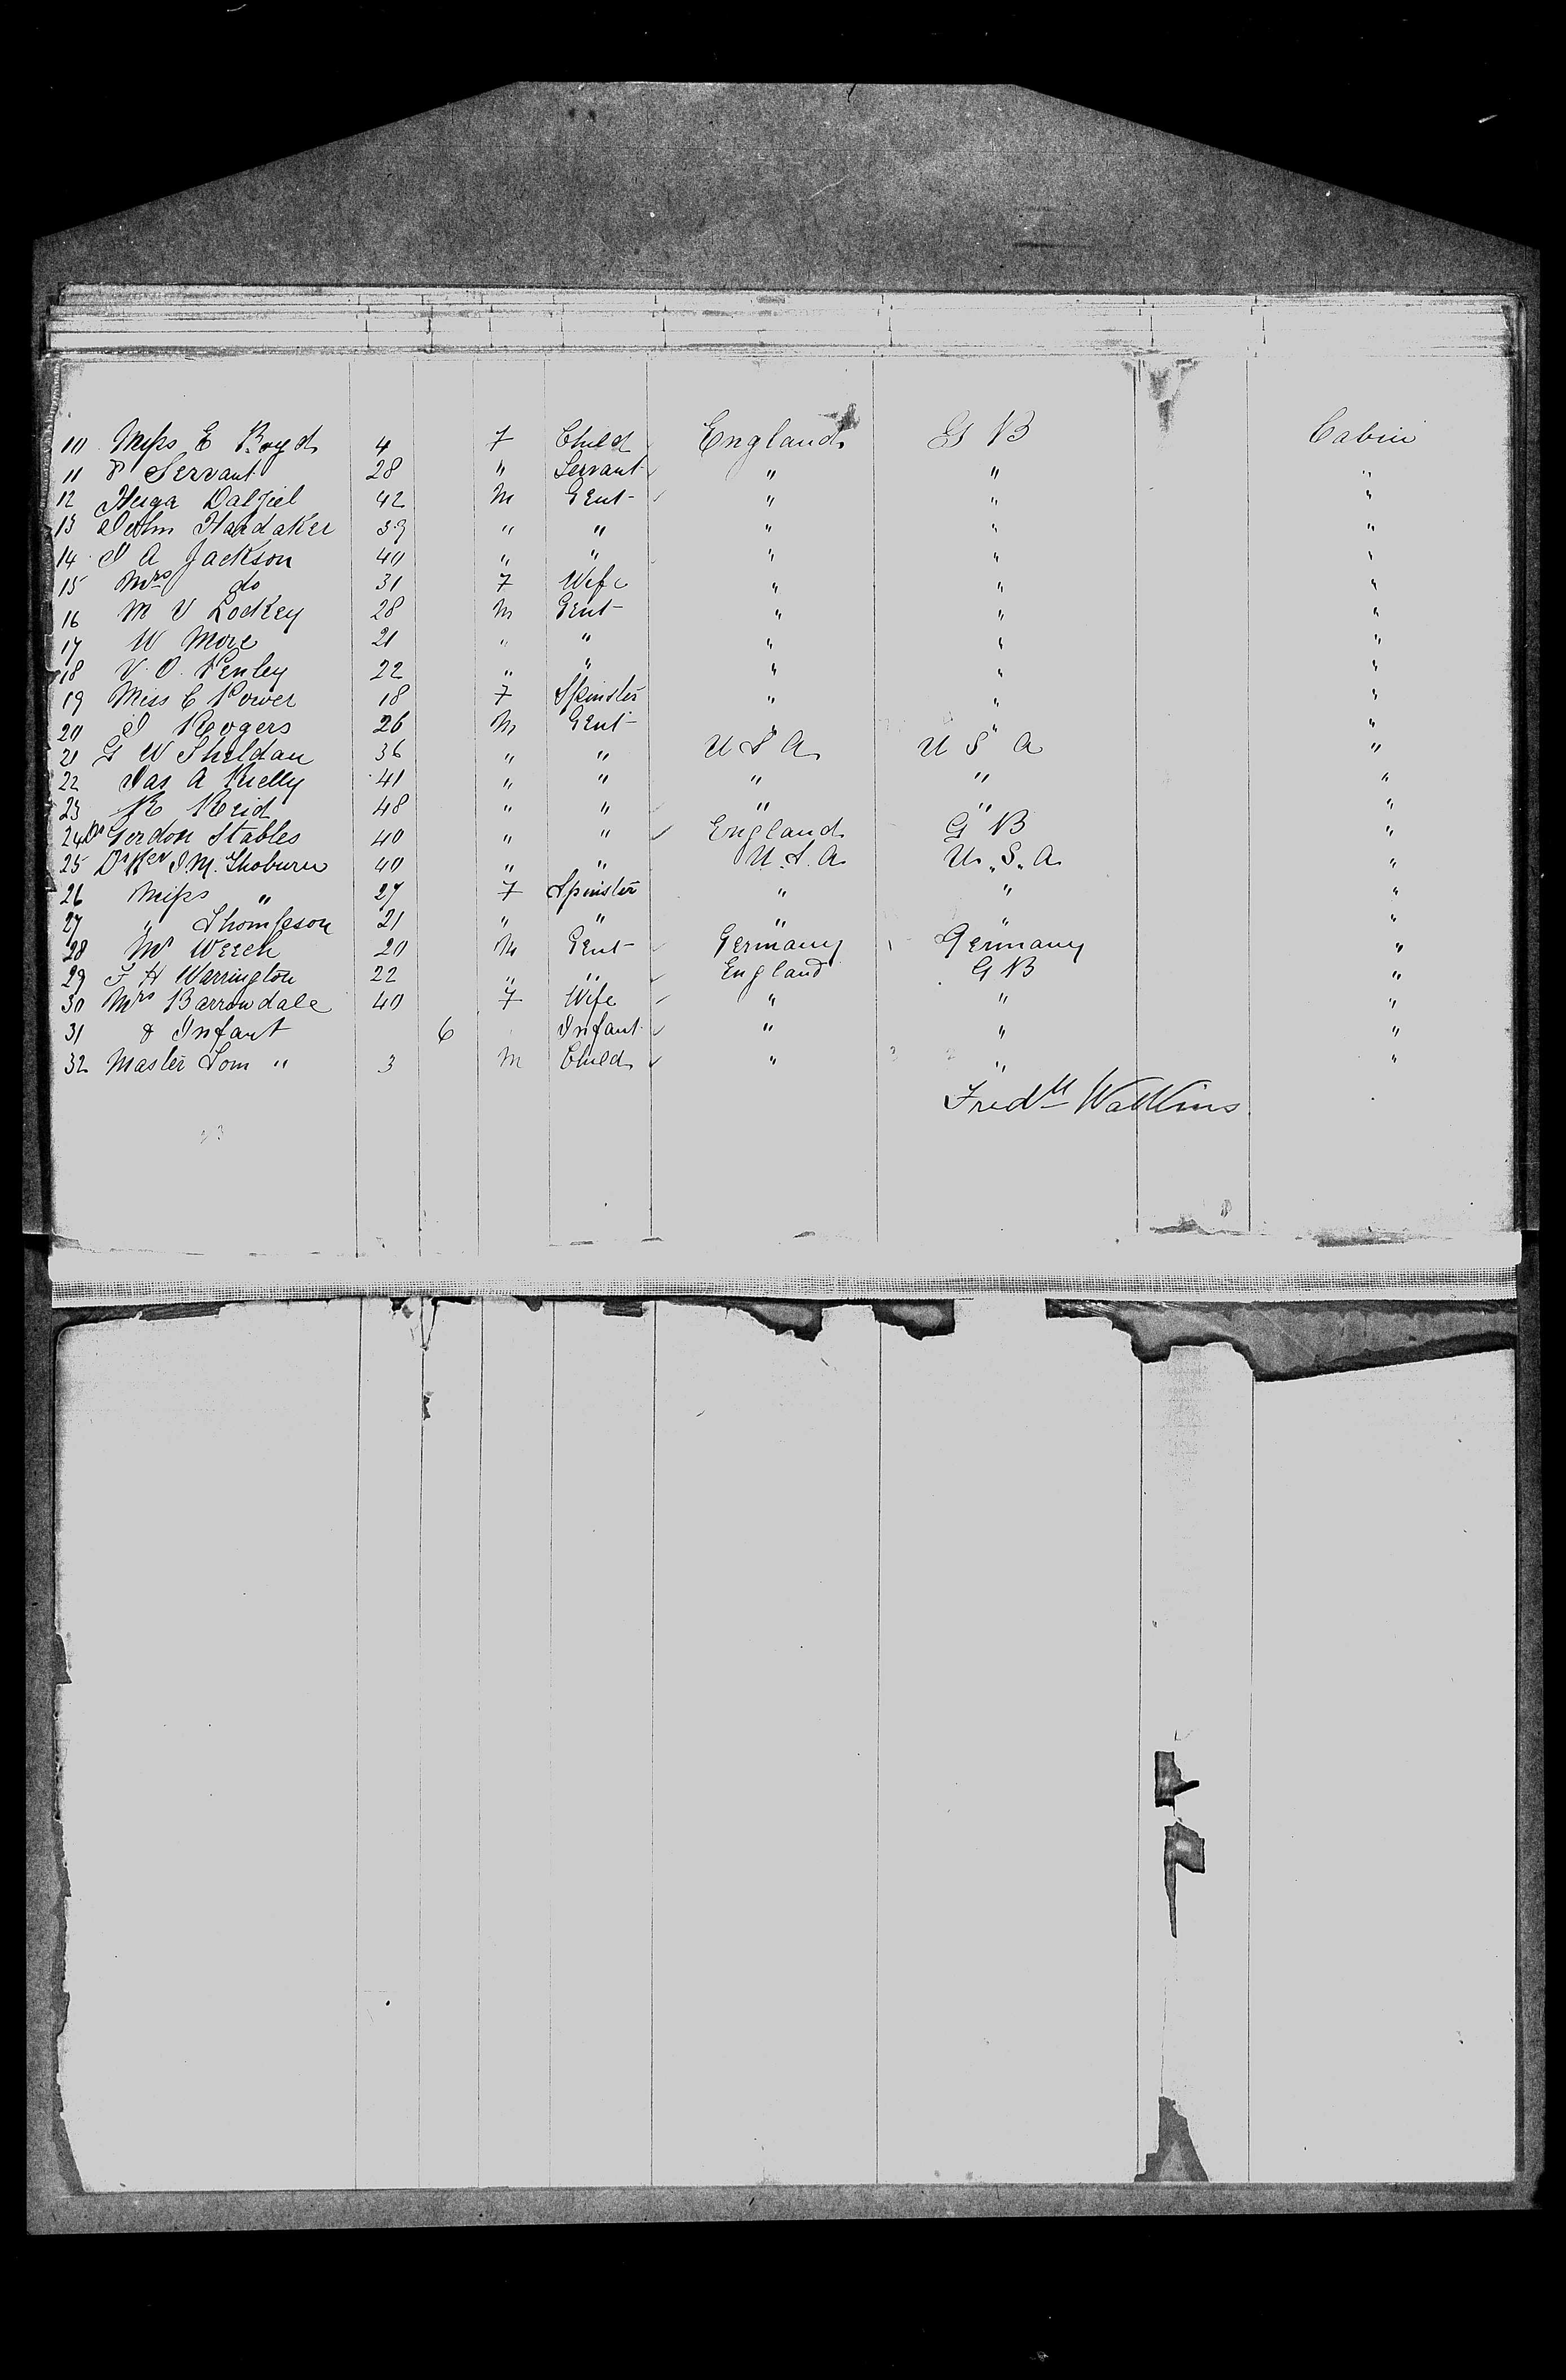 10 Miss E Boyd 4 F Child England G B Cabin
11 & Servant 28 " Servant " " "
12 Dalziel 42 M Gent " " "
13 John Hardaker 39 " " " " "
14 J A Jackson 40 " " " " "
15 Mrs do 31 F Wife " " "
16 M V Lockey 28 M Gent " " "
17 W More 21 " " " " "
18 V. O. Penley 22 " " " " "
19 Miss C Power 18 F Spinster " " "
20 J Rogers 26 M Gent " " "
21 G W Sheldan 36 " " U S A U S A "
22 Jas A Kielly 41 " " " " "
23 R Reid 48 " " " " "
24 Dr Gordon Stables 40 " " England G B "
25 Dr Rev J. M. Thoburn 40 " " U. S. A U. S. A "
26 Miss " 27 F Spinster " " "
27 " Thompson 21 " " " " "
28 Mr Weech 20 M Gent Germany Germany "
29 F H Warrington 22 " " England G B "
30 Mrs Barrowdale 40 F Wife " " "
31 & Infant 6 Infant " " "
32 Master Tom " 3 M Child " " "
Fredk Watkins